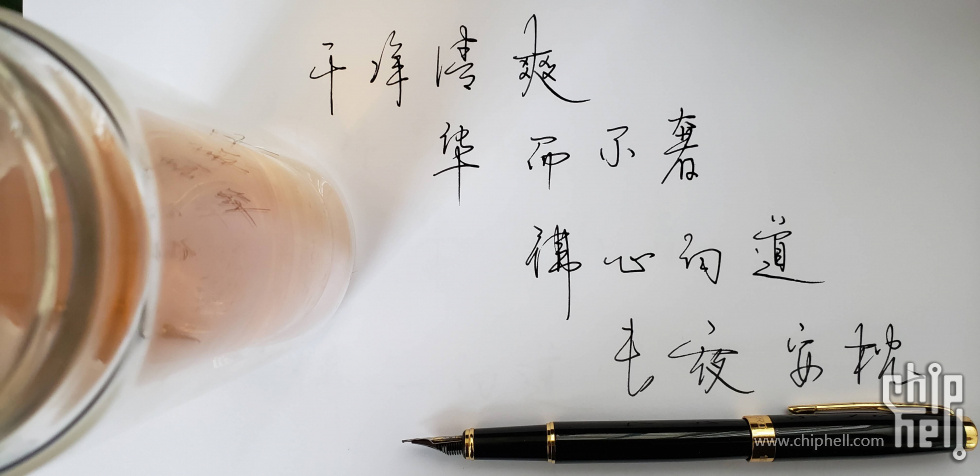 干净清爽
华而不奢
禅心向道
长夜安枕
chip
hell
www.chiphell.com